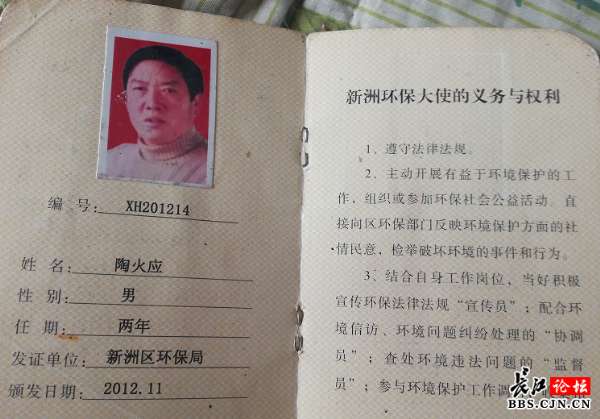 编 号: XH201214
姓 名: 陶火应
性 别: 男
任 期: 两年
发证单位: 新洲区环保局
颁发日期: 2012.11
新洲环保大使的义务与权利
1、遵守法律法规。
2、主动开展有益于环境保护的工
作，组织或参加环保社会公益活动。直
接向区环保部门反映环境保护方面的社
情民意，检举破坏环境的事件和行为。
3、结合自身工作岗位，当好积极
宣传环保法律法规“宣传员”；配合环
境信访、环境问题纠纷处理的“协调
员”；查处环境违法问题的“监督
员”；参与环境保护工作调
长江论坛
BBS.CJN.CN